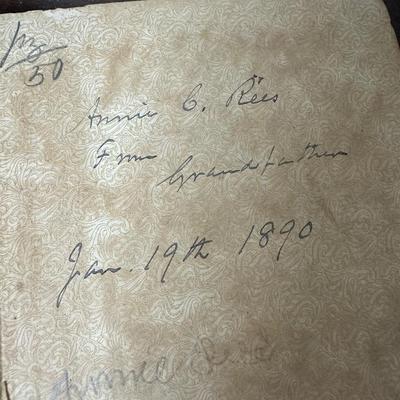 50
Annie C. Rees
From
Grandfather
Jan. 19th 1890
Annie